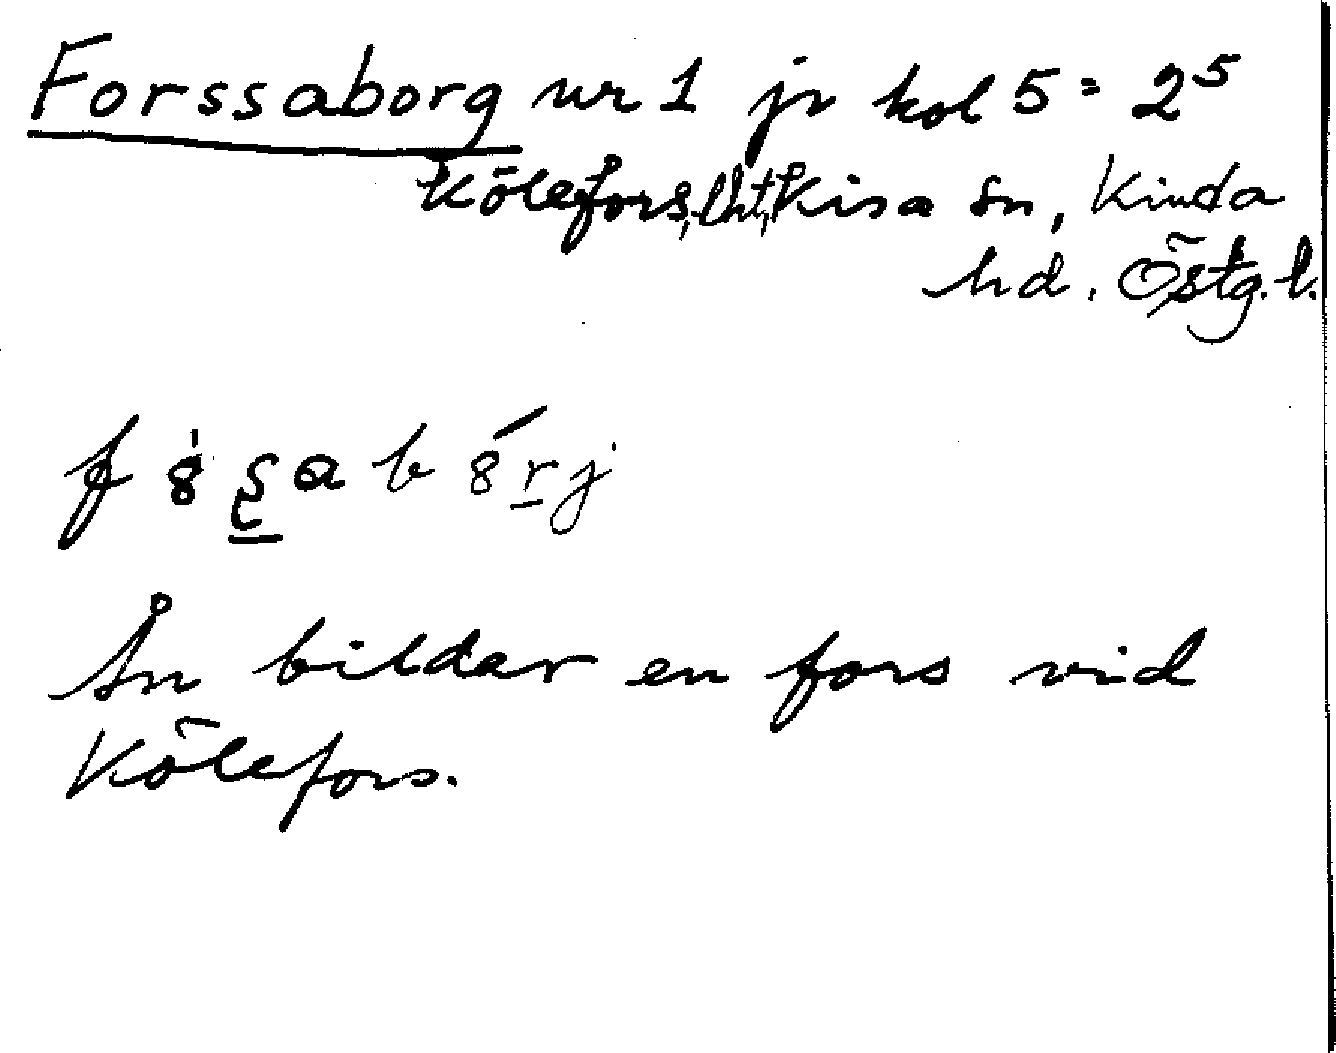 Forssaborg nr 1 jr kol 5 = 2⁵
Kölefors, lht, Kisa sn, Kinda
hd. Östg. l.
f 8 a b 8 r j
Ån bildar en fors vid
Kölefors.